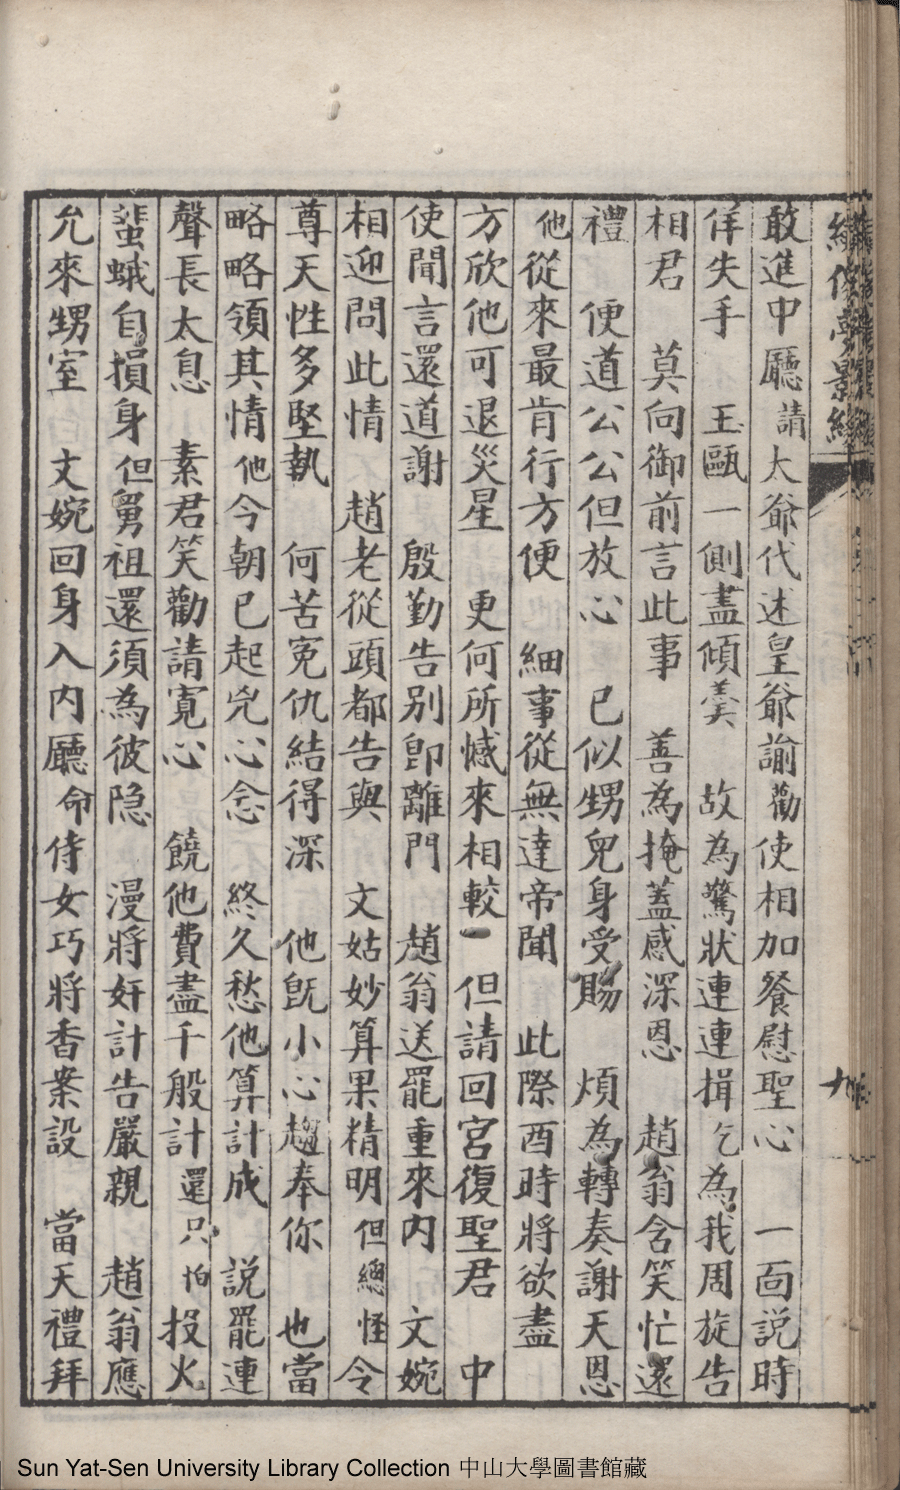 敢進中廳請太爺代述皇爺諭勸使相加餐慰聖心　一面説時
佯失手　玉甌一側盡傾羹　故為驚狀連連揖乞為我周旋告
相君　莫向御前言此事　善為掩蓋感深恩　趙翁含笑忙還
禮　便道公公但放心　已似甥兒身受賜　煩為轉奏謝天恩
他從來最肯行方便　細事從無達帝聞　此際酉時將欲盡
方欣他可退災星　更何所憾來相較　但請回宮復聖君　中
使聞言還道謝　殷勤告别卽離門　趙翁送罷重來内　文婉
相迎問此情　趙老從頭都告與　文姑妙算果精明但總怪令
尊天性多堅執　何苦冤仇結得深　他旣小心趨奉你　也當
略略領其情他今朝已起兇心念　終久愁他算計成　説罷連
聲長太息　素君笑勸請寬心　饒他費盡千般計還只怕投火
蜚蛾自損身但舅祖還須為彼隐　漫將奸計告嚴親　趙翁應
允來甥室　文婉回身入内廳命侍女巧將香案設　當天禮拜
Sun Yat-Sen University Library Collection 中山大學圖書館藏